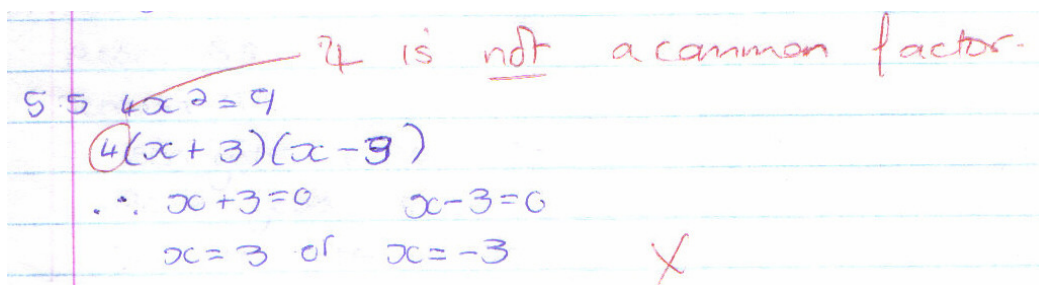 4 is not a common factor.
5 5 4x² = 9
4(x + 3)(x - 3)
∴ x + 3 = 0 x - 3 = 0
x = 3 or x = -3 X